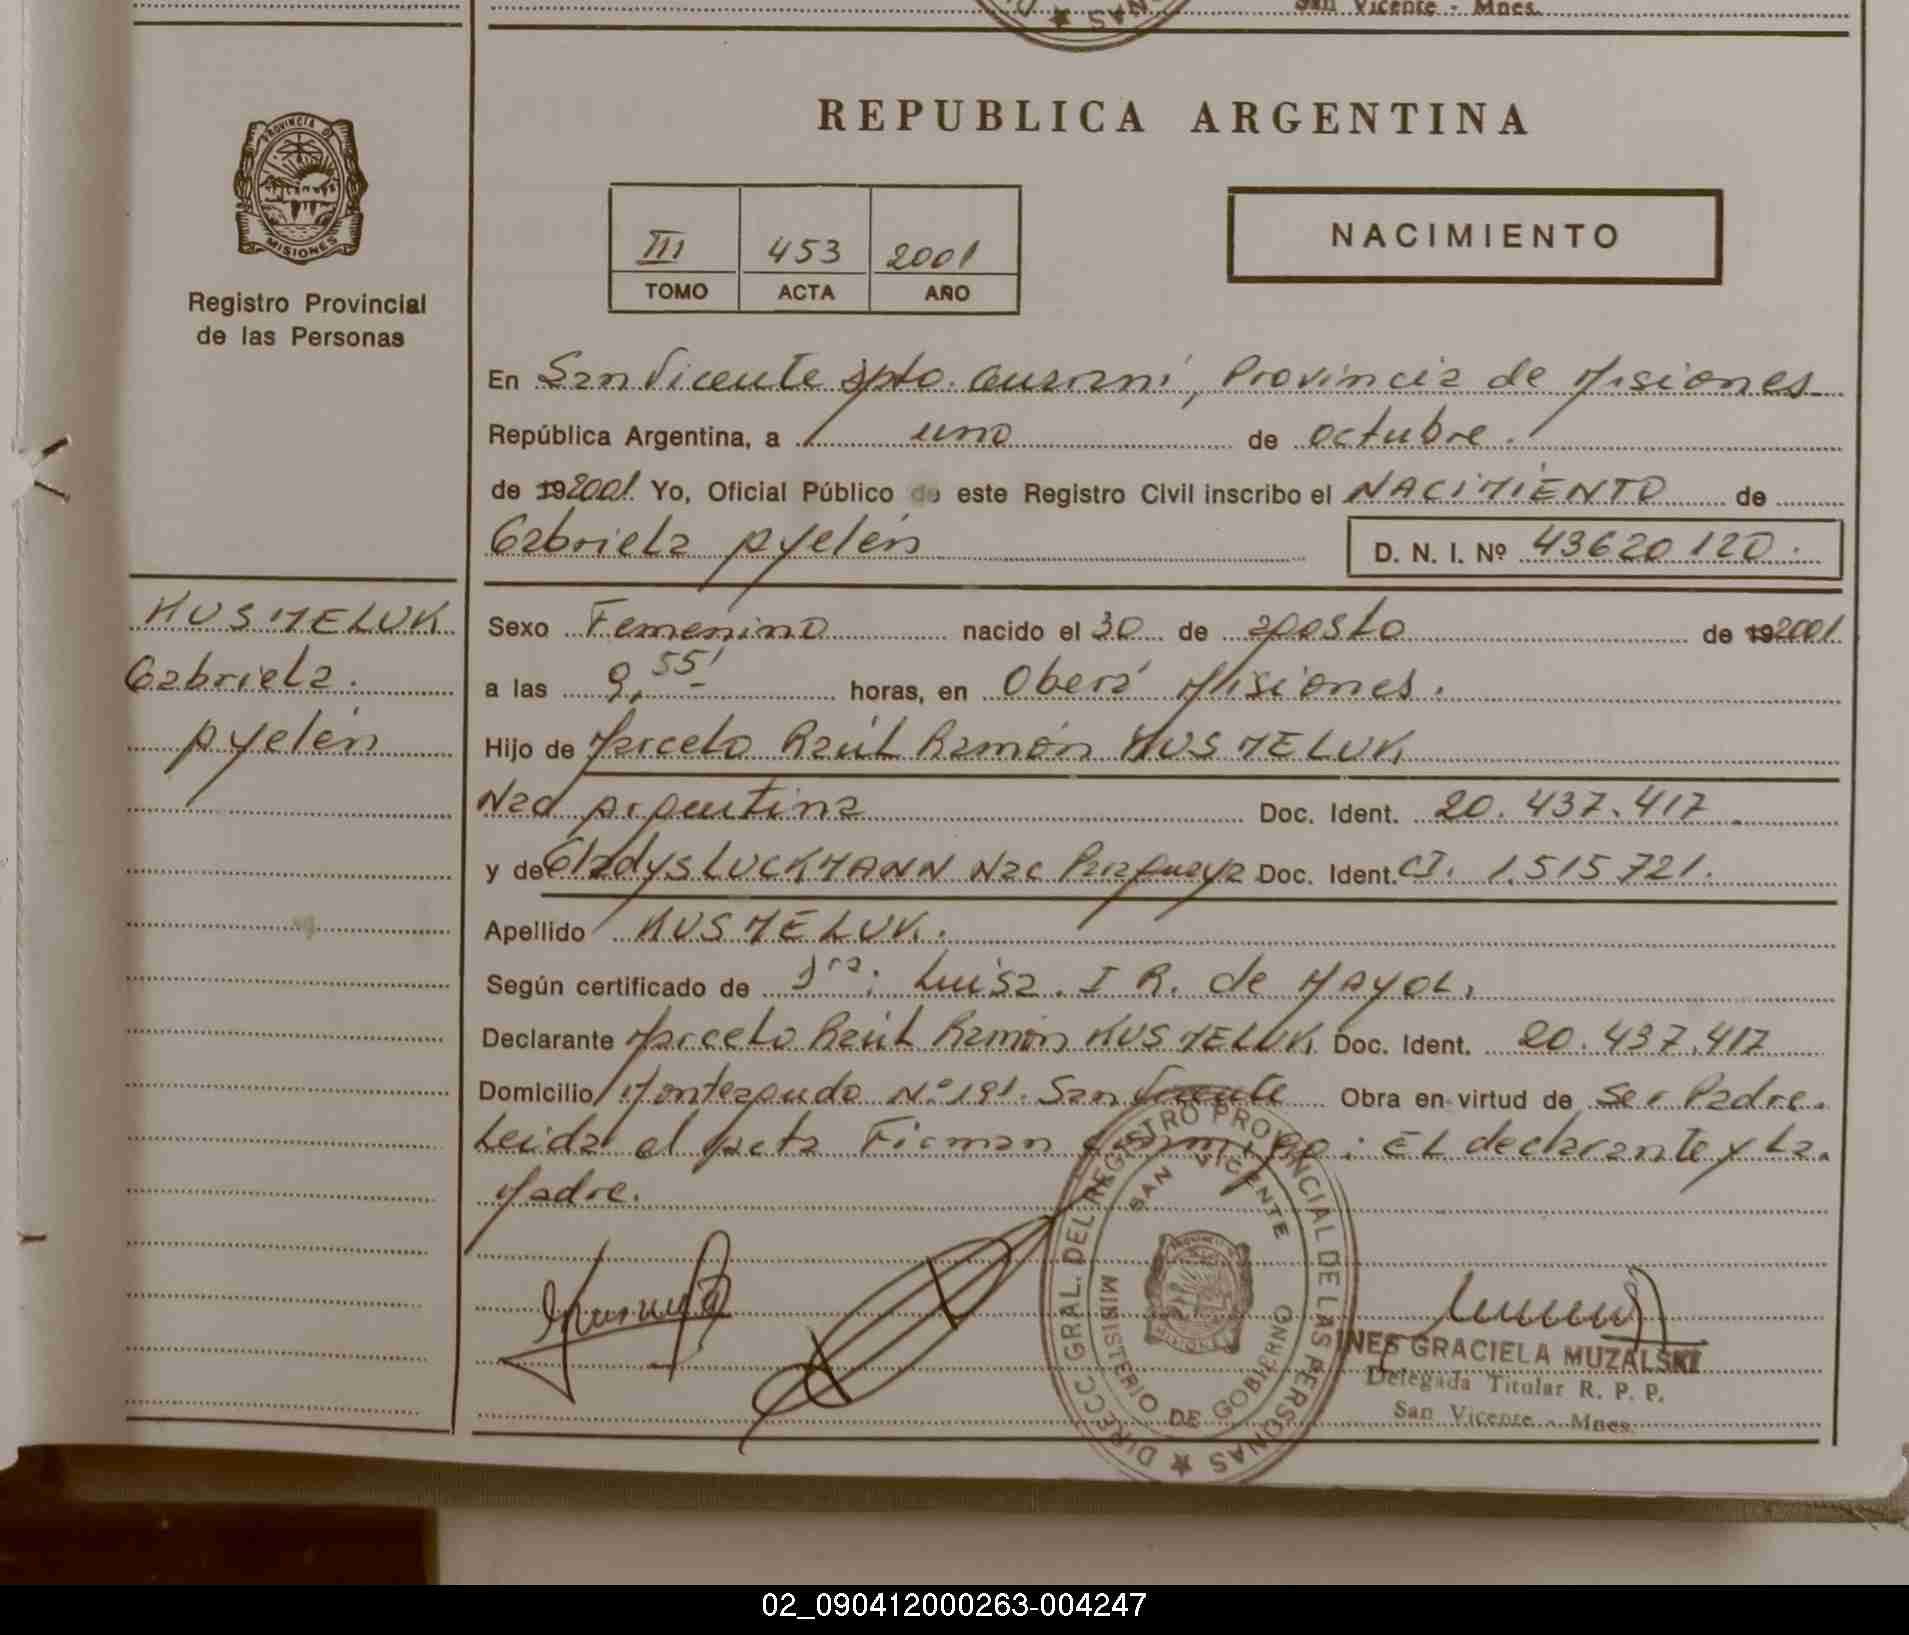 San Vicente - Mnes.
REPUBLICA ARGENTINA
PROVINCIA DE
MISIONES
Registro Provincial
de las Personas
III 453 2001
TOMO ACTA AÑO
NACIMIENTO
En San Vicente Dpto. Guaraní, Provincia de Misiones
República Argentina, a uno de octubre.
de 19 2001. Yo, Oficial Público de este Registro Civil inscribo el NACIMIENTO de
Gabriela Ayelén D. N. I. Nº 43620120.
KUSMELUK
Gabriela.
Ayelén
Sexo Femenino nacido el 30 de agosto de 19 2001.
a las 9,55' horas, en Oberá Misiones.
Hijo de Marcelo Raúl Ramón KUSMELUK
Nac Argentina Doc. Ident. 20.437.417
y de Gladys LUCKMANN Nac Paraguaya Doc. Ident. CI. 1.515.721.
Apellido KUSMELUK.
Según certificado de Dra: Luisa. I R. de MAYOL.
Declarante Marcelo Raúl Ramón KUSMELUK Doc. Ident. 20.437.417
Domicilio Monteagudo Nº 191. San Vicente Obra en virtud de Ser Padre.
Leida el Acta Firman conmigo: El declarante y La
Madre.
DIRECC. GRAL. DEL REGISTRO PROVINCIAL DE LAS PERSONAS
SAN VICENTE
MINISTERIO DE GOBIERNO
INES GRACIELA MUZALSKI
Delegada Titular R. P. P.
San Vicente - Mnes.
02_090412000263-004247